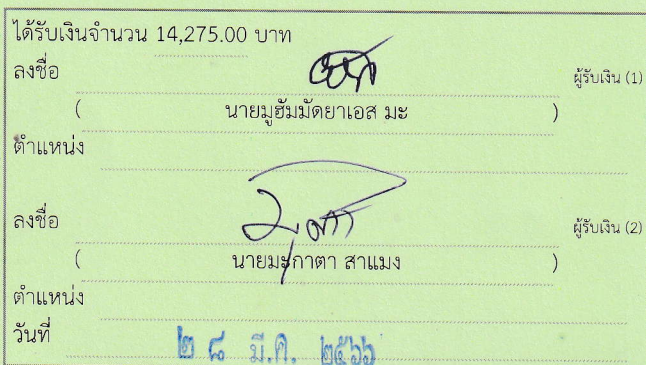 ได้รับเงินจำนวน 14,275.00 บาท
ลงชื่อ ผู้รับเงิน (1)
( นายมูฮัมมัดยาเอส มะ )
ตำแหน่ง
ลงชื่อ ผู้รับเงิน (2)
( นายมะกาตา สาแมง )
ตำแหน่ง
วันที่ ๒ ๘ มี.ค. ๒๕๖๖